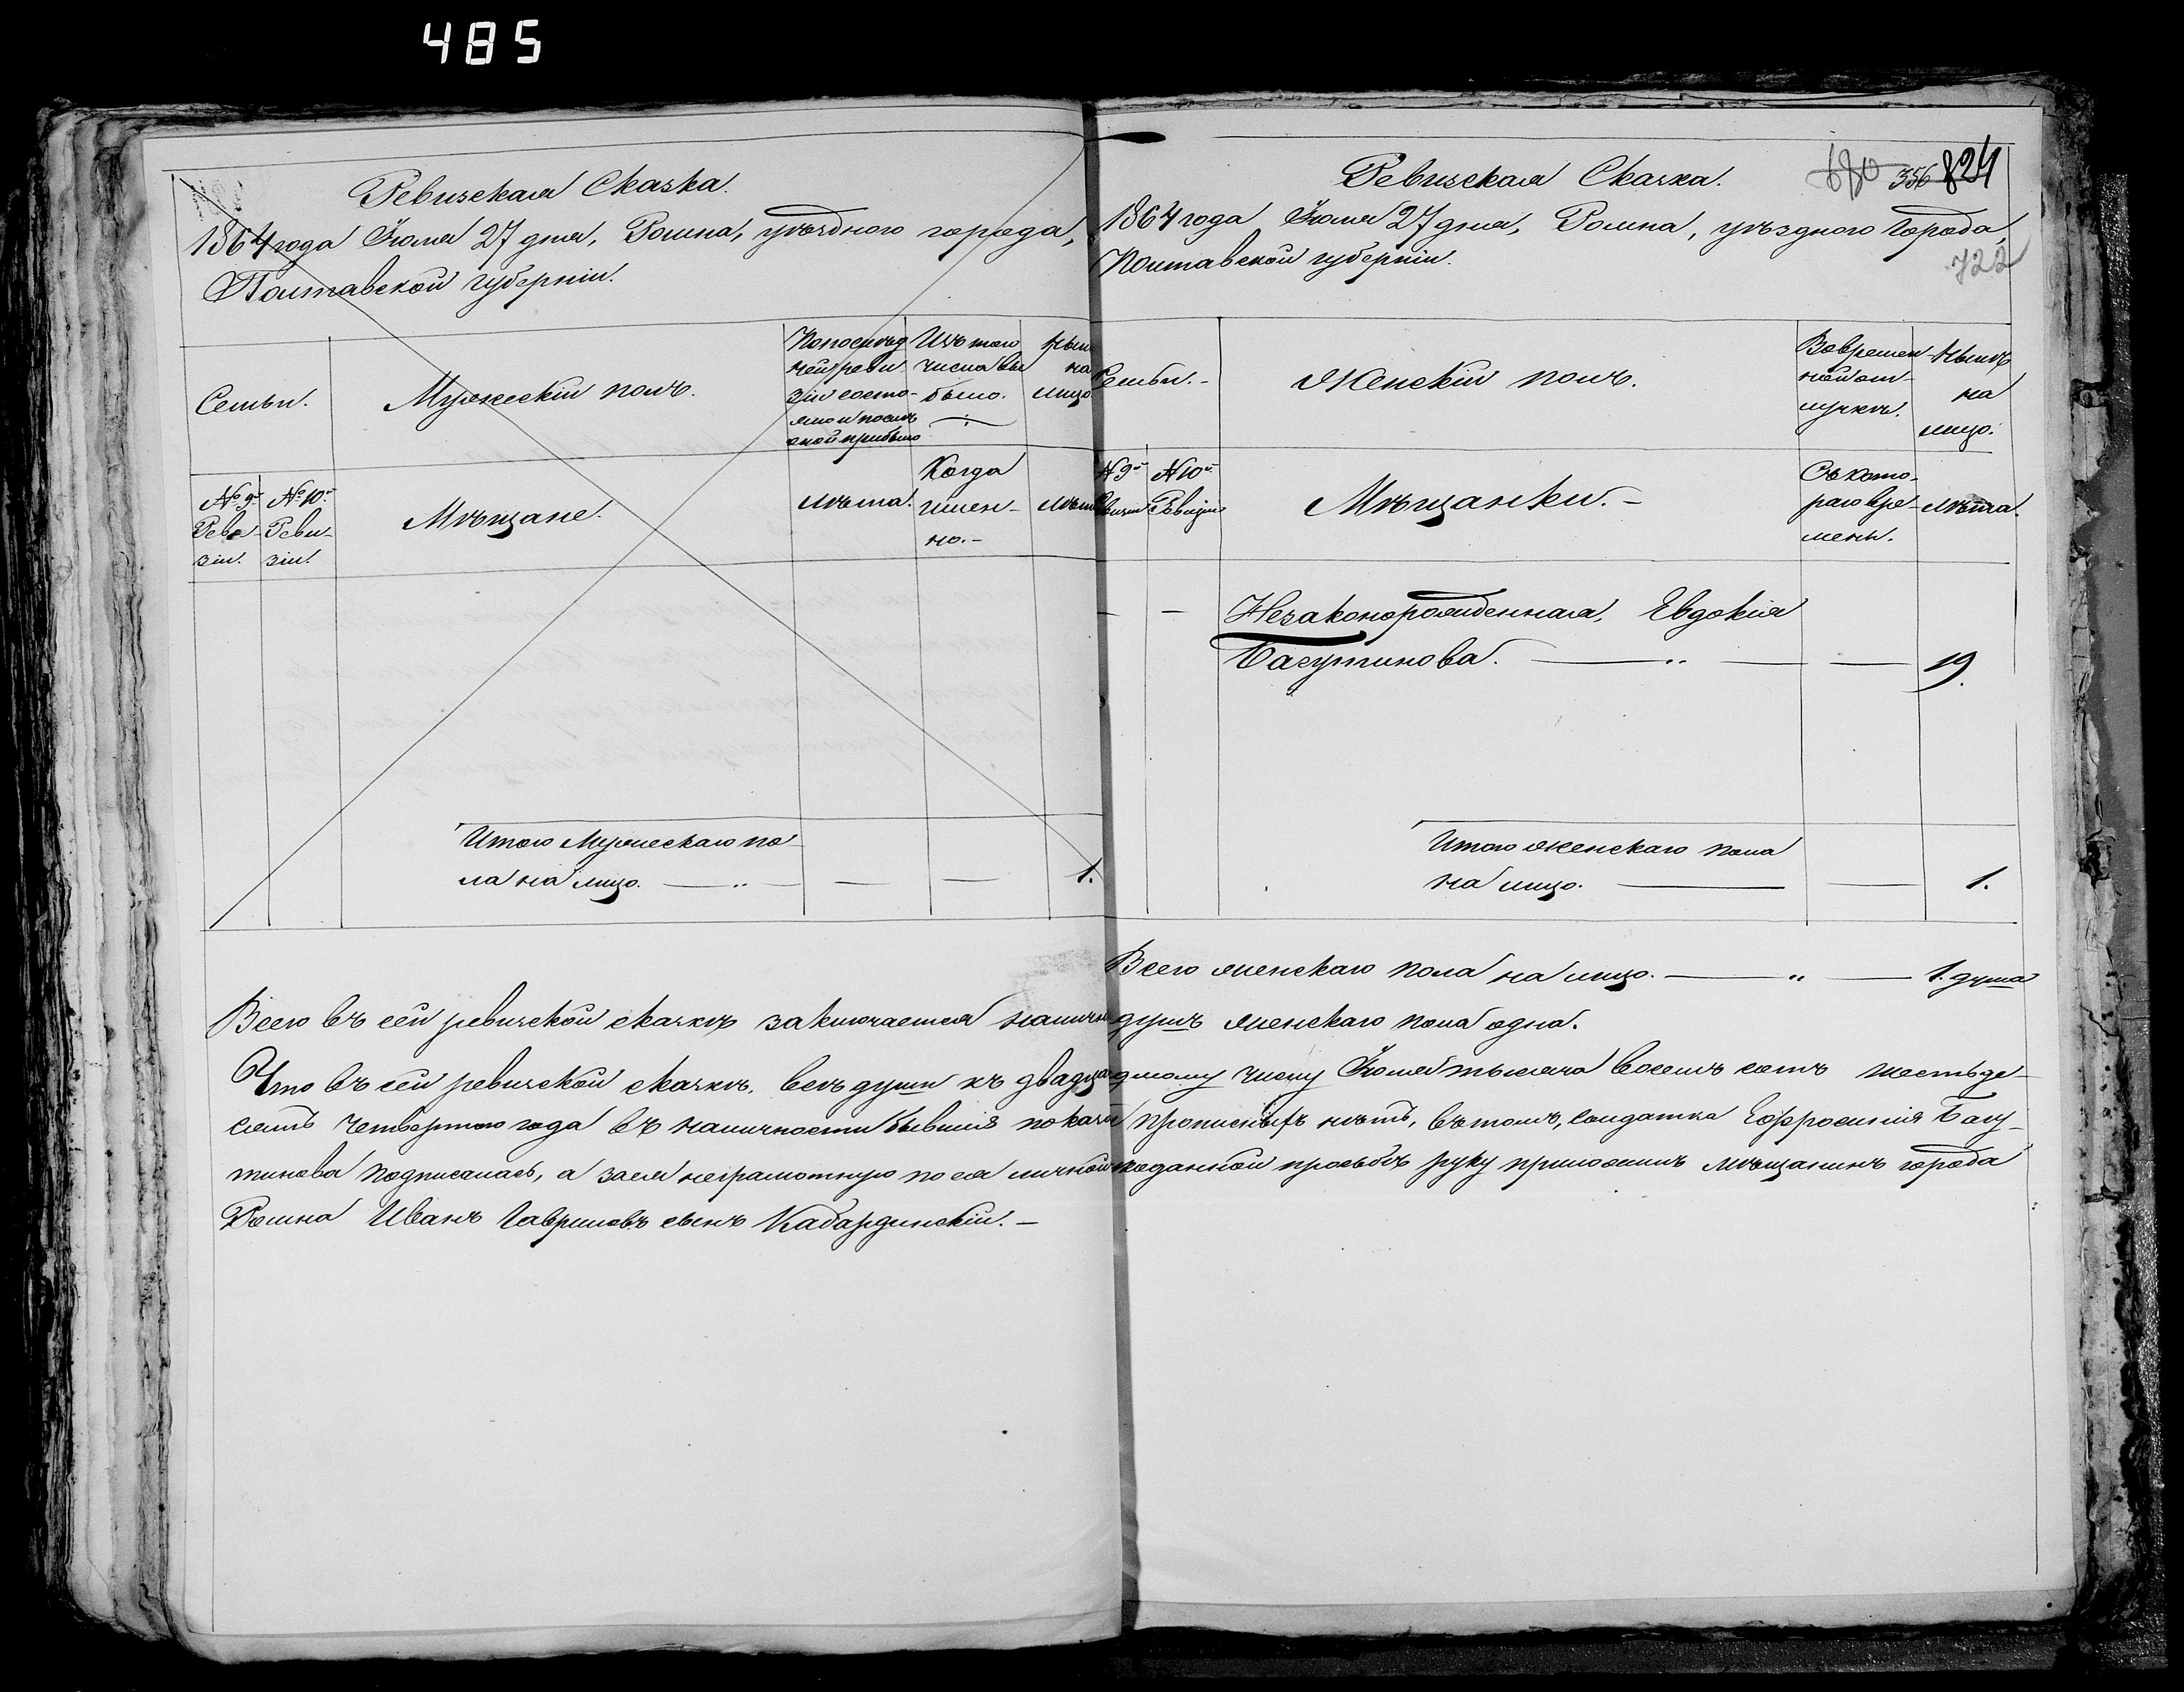 485
Ревизская Сказка.
1864 года Іюля 27 дня, Ромна, уѣзднаго города,
Полтавской губерніи.
Семьи.
Мужескій полъ.
По послѣд
ней реви
зіи состо-
яло и послѣ
оной прибыло
Изъ того
числа вы
было.
Нын
на
лицо
№ 9й
Реви-
зіи.
№ 10й
Реви-
зіи.
Мѣщане.
Лѣта.
Когда
имен-
но.-
Лѣта
Итого Мужескаго по
ла на лицо. — „ — — — 1.
Ревизская Сказка.
680 356 824
1864 года Іюля 27 дня, Ромна, уѣзднаго города,
722
Полтавской губерніи.
Семьи.-
Женскій полъ.
Во времен-
ной от-
лучкѣ.
Нынѣ
на
лицо.
№ 9й
Ревизіи
№ 10й
Ревизіи
Мѣщанки.-
Съ кото-
раго вре-
мени.
Лѣта.
— — Незаконорожденная, Евдокія
Багутинова. — „ — — 19.
Итого женскаго пола
на лицо. — — 1.
Всего женскаго пола на лицо. — „ — 1. душа
Всего въ сей ревизской сказкѣ заключается наличн душъ женскаго пола одна.
Что въ сей ревизской сказкѣ, всѣ души къ двадца дмому числу Іюля тысяча восемь сотъ шестьде-
сятъ четвертаго года въ наличности бывшія показа прописныхъ нѣтъ, въ томъ, солдатка Ефросинія Багу-
тинова подписалась, а за нея неграмотную по ея личной поданной просьбѣ руку приложилъ мѣщанинъ города
Ромна Иванъ Гавриловъ сынъ Кабардинскій.-